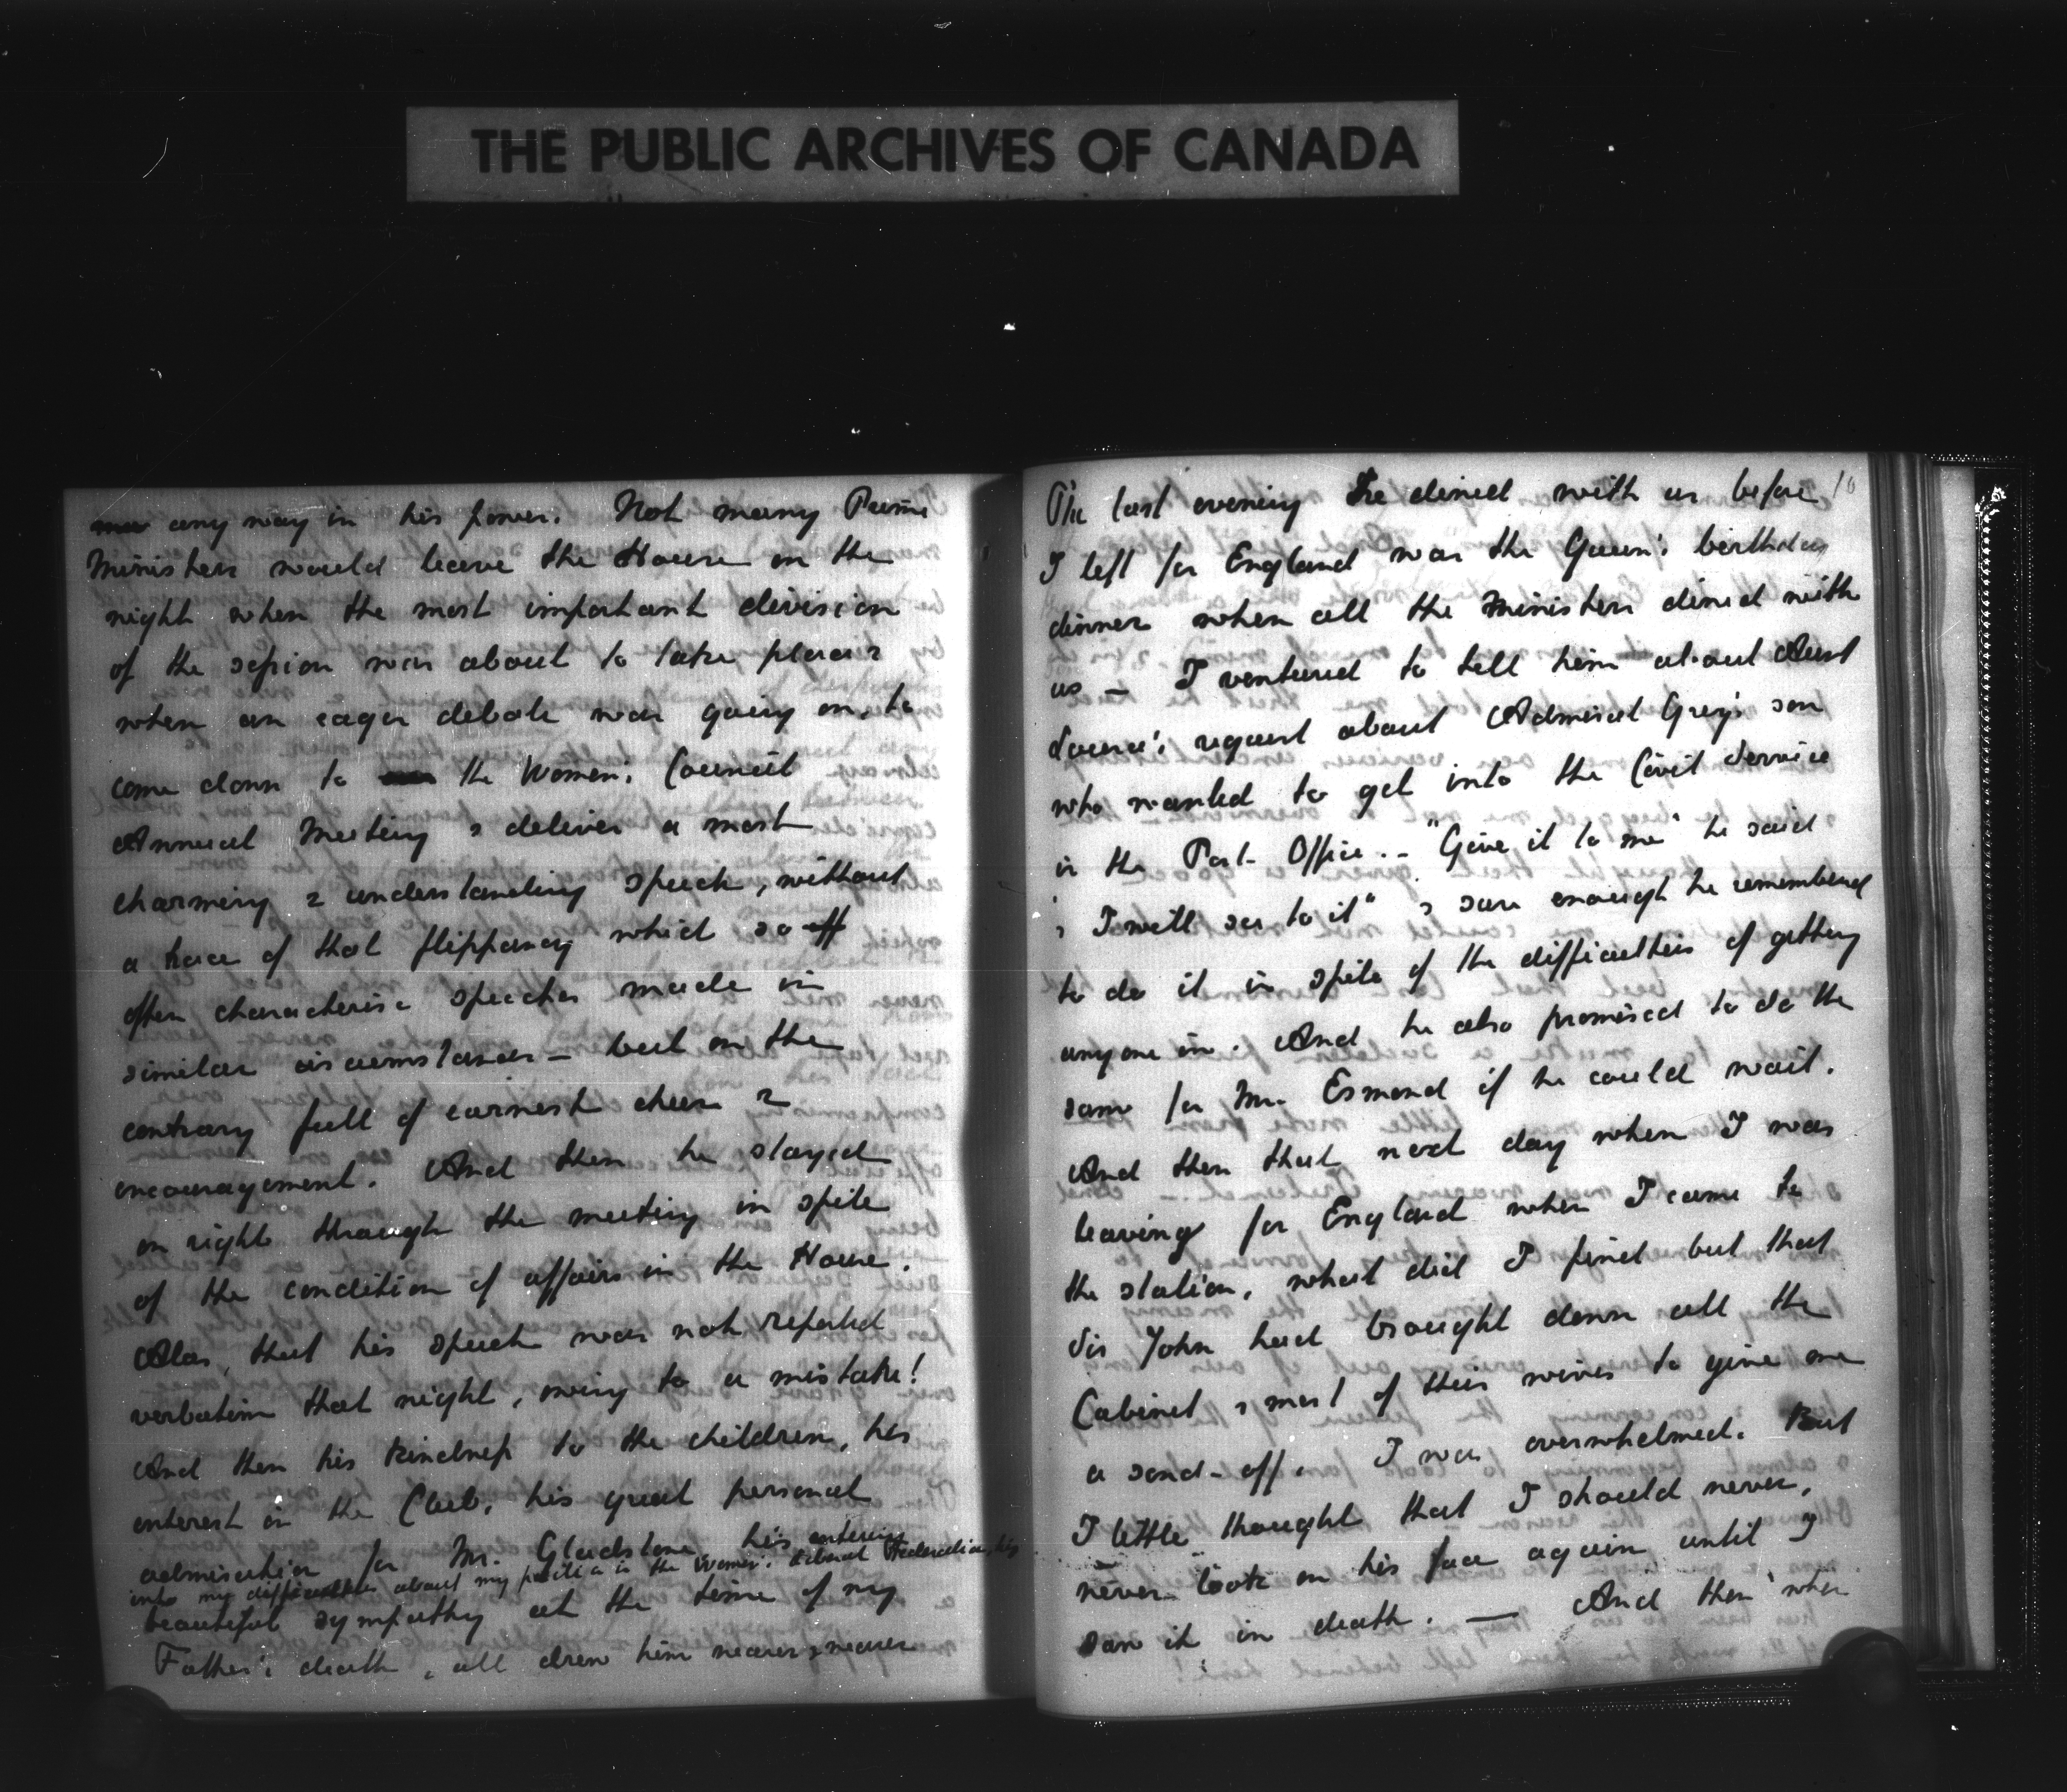 THE PUBLIC ARCHIVES OF CANADA
any way in his power. Not many Prime
Ministers would leave the House on the
night when the most important division
of the session was about to take place &
when an eager debate was going on, to
come down to the Women's Council
Annual Meeting & deliver a most
charming & understanding speech, without
a trace of that flippancy which so off
often characterise speeches made in
similar circumstances – but on the
contrary full of earnest cheer &
encouragement. And then he stayed
on right through the meeting in spite
of the condition of affairs in the House.
Alas, that his speech was not reported
verbatim that night, owing to a mistake!
And then his kindness to the children, his
interest in the Club, his great personal
admiration for Mr. Gladstone, his entering
into my difficulties about my position in the Women's Liberal Federation, his
beautiful sympathy at the time of my
Father's death, all drew him nearer & nearer
The last evening he dined with us before 10
I left for England was the Queen's birthday
dinner when all the Ministers dined with
us – I ventured to tell him about Aunt
Louisa's request about Admiral Grey's son
who wanted to get into the Civil Service
in the Post Office. – "Give it to me" he said
"& I will see to it" & sure enough he remembered
to do it in spite of the difficulties of getting
anyone in. And he also promised to do the
same for Mr. Esmond if he could wait.
And then that next day when I was
leaving for England when I came to
the station, what did I find but that
Sir John had brought down all the
Cabinet & most of their wives to give me
a send-off. I was overwhelmed. But
I little thought that I should never,
never look on his face again until I
saw it in death. — And then when